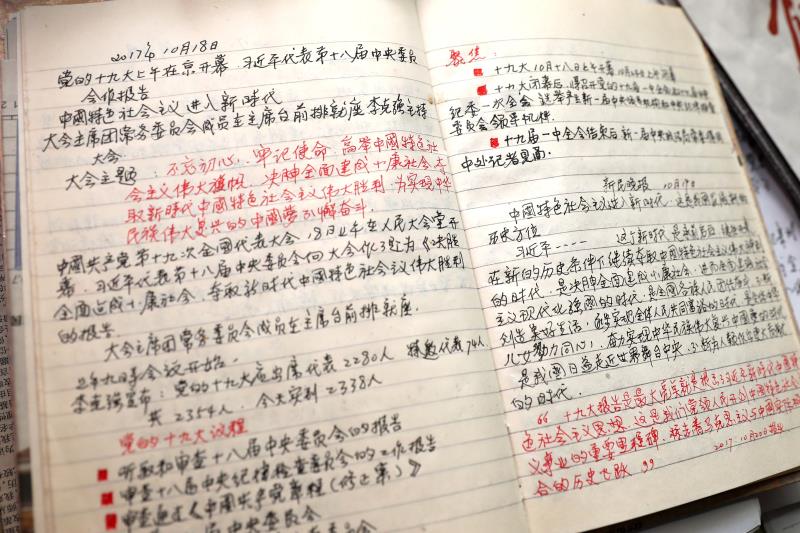 2017年10月18日
党的十九大上午在京开幕 习近平代表第十八届中央委员
会作报告
中國特色社会主义进入新时代
大会主席团常务委员会成员在主席台前排就座 李克强主持
大会
大会主题：不忘初心，牢记使命，高举中國特色社
会主义伟大旗帜，决胜全面建成小康社会，夺
取新时代中國特色社会主义伟大胜利，为实现中华
民族伟大复兴的中國梦不懈奋斗。
中國共产党第十九次全國代表大会，18日上午在人民大会堂开
幕，习近平代表第十八届中央委员会向大会作了题为《决胜
全面建成小康社会，夺取新时代中國特色社会主义伟大胜利
的报告
大会主席团常务委员会成员在主席台前排就座。
上午九时会议开始。
李克强宣布：党的十九大应出席代表2280人 特邀代表74人，
共2354人，今天实到2338人
党的十九大议程
听取和审查十八届中央委员会的报告
审查十八届中央纪律检查委员会的工作报告
审查通过《中國共产党章程（修正案）》
届中央委员会
聚焦：
十九大10月十八日上午开幕，10月24日上午闭幕
十九大闭幕后，
纪委一次全会 选举产生新一届中央
委员会领导机构。
十九届一中全会结束后新一届中央政治局常委
中外记者见面。
新民晚报 10月19日
中國特色社会主义进入新时代，这是我國发展新的
历史方位
习近平----- 这个新时代，是承前启后，继往开来
在新的历史条件下继续夺取中國特色社会主义伟大胜利
的时代，是决胜全面建成小康社会，进而全面建设社会
主义现代化强國的时代，是全國各族人民团结奋斗，不断
创造美好生活，逐步实现全体人民共同富裕的时代，是全体中华
儿女勠力同心，奋力实现中华民族伟大复兴中國梦的时代，
是我國日益走近世界舞台中央，不断为人类作出更大贡献
的时代。
“十九大报告
色社会主义思想，这是我们党领人民
义事业的重要里程碑，标志着马克思主义与中國实际
合的历史飞跃”
2017.10月20日